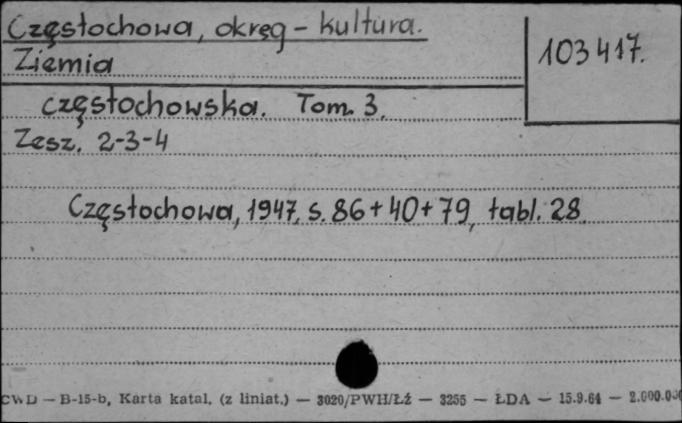 Częstochowa, okręg - kultura.
103417.
Ziemia
częstochowska. Tom. 3.
Zesz. 2-3-4
Częstochowa, 1947, s. 86+40+79, tabl. 28.
CWD — B-15-b, Karta katal. (z liniat.) — 3020/PWH/Łź — 3255 — ŁDA — 15.9.64 — 2.000.000